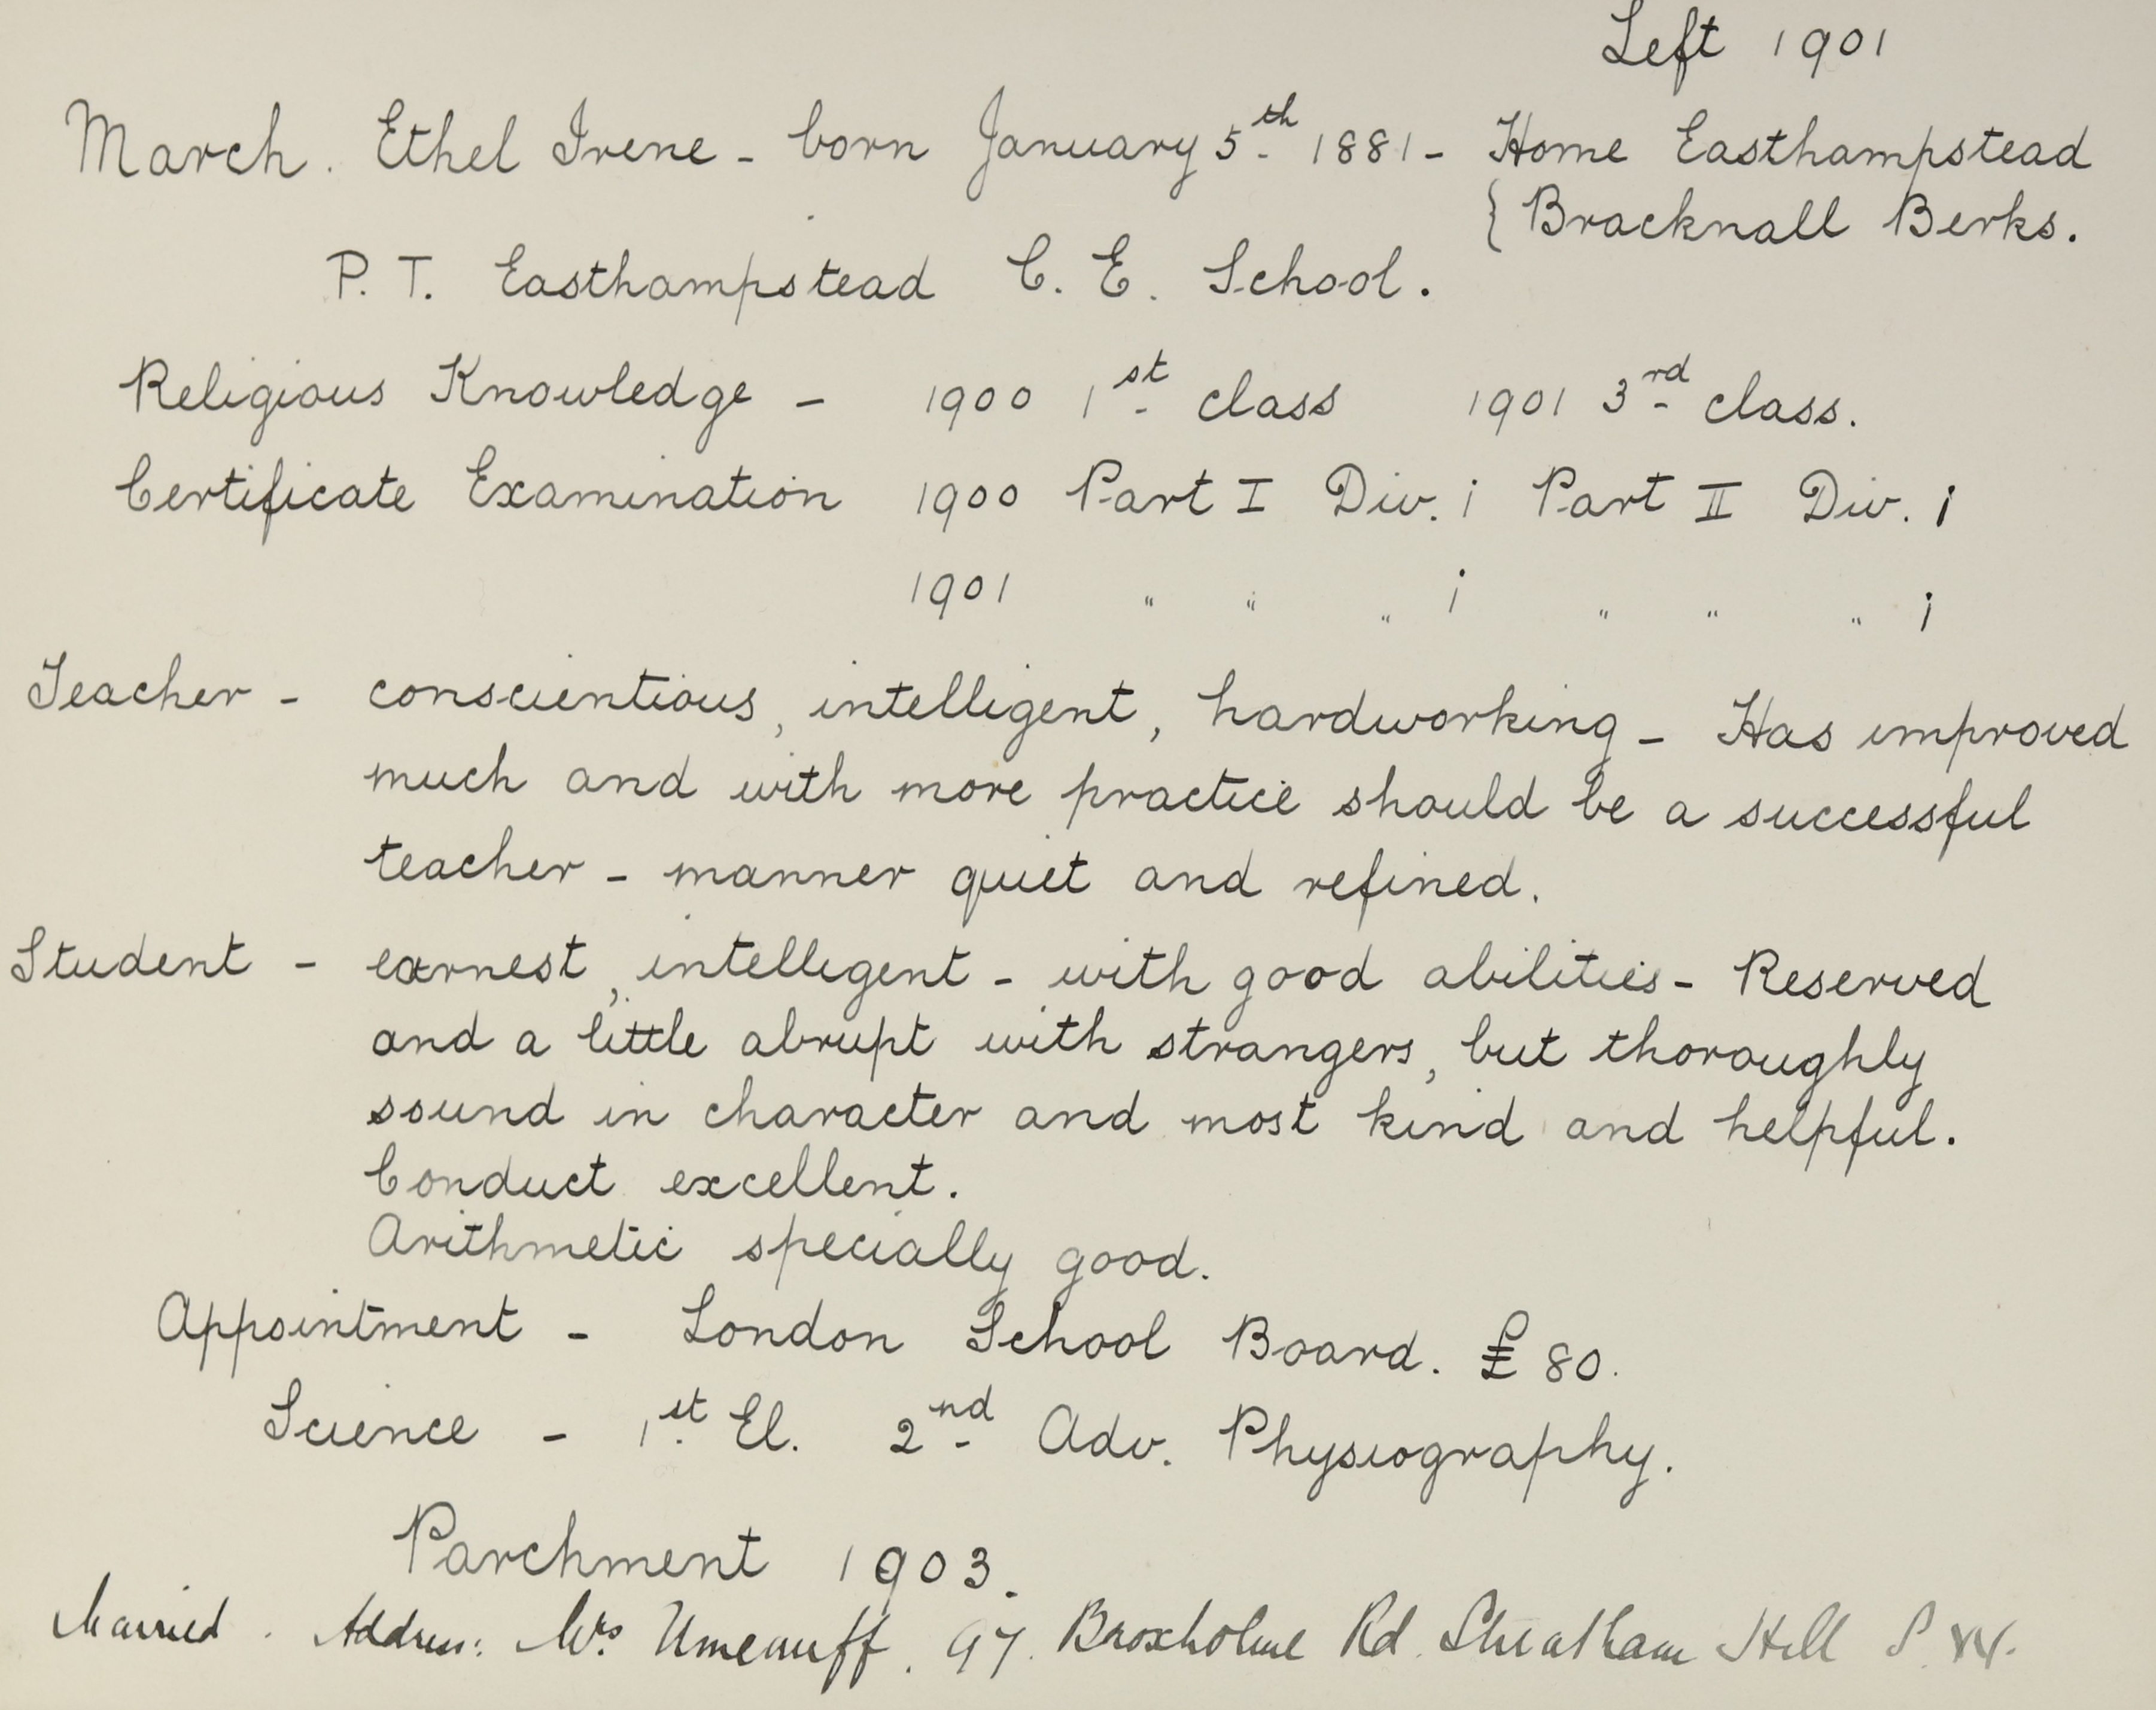 Left 1901
March. Ethel Irene - born January 5th 1881 - Home Easthampstead
{ Bracknall Berks.
P. T. Easthampstead C. E. School.
Religious Knowledge - 1900 1st class 1901 3rd class.
Certificate Examination 1900 Part I Div. i Part II Div. i
1901 " " " i " " " i
Teacher - conscientious, intelligent, hardworking - Has improved
much and with more practice should be a successful
teacher - manner quiet and refined.
Student - earnest, intelligent - with good abilities - Reserved
and a little abrupt with strangers, but thoroughly
sound in character and most kind and helpful.
Conduct excellent.
Arithmetic specially good.
Appointment - London School Board. £80.
Science - 1st El. 2nd Adv. Physiography.
Parchment 1903.
Married. Address: Mrs 97. Broxholme Rd. Streatham Hill S.W.